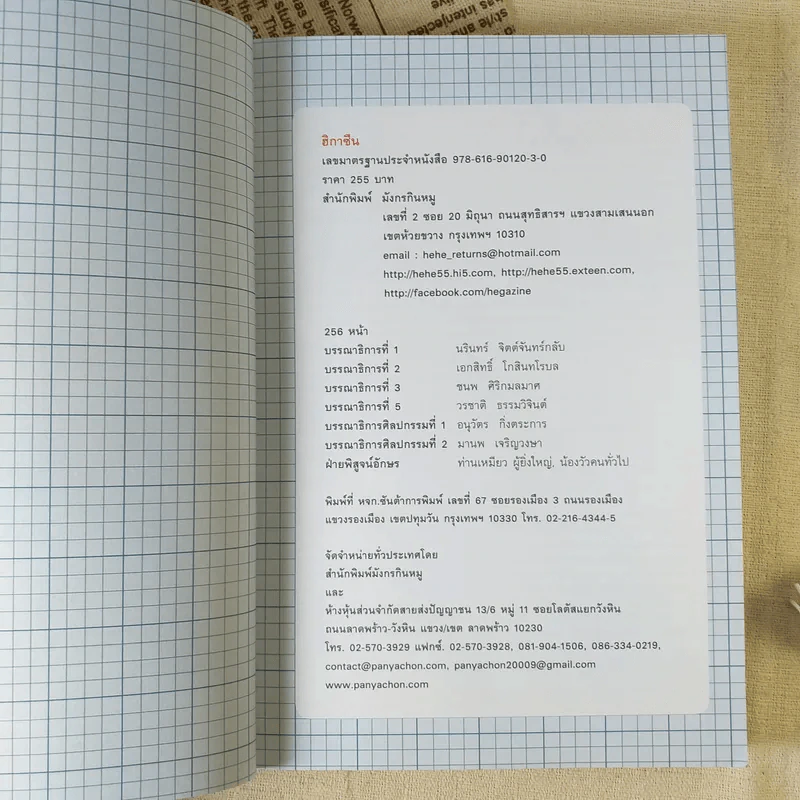 ฮิกาซีน
เลขมาตรฐานประจำหนังสือ 978-616-90120-3-0
ราคา 255 บาท
สำนักพิมพ์ มังกรกินหมู
เลขที่ 2 ซอย 20 มิถุนา ถนนสุทธิสารฯ แขวงสามเสนนอก
เขตห้วยขวาง กรุงเทพฯ 10310
email : hehe_returns@hotmail.com
http://hehe55.hi5.com, http://hehe55.exteen.com,
http://facebook.com/hegazine
256 หน้า
บรรณาธิการที่ 1 นรินทร์ จิตต์จันทร์กลับ
บรรณาธิการที่ 2 เอกสิทธิ์ โกสินทโรบล
บรรณาธิการที่ 3 ชนพ ศิริกมลมาศ
บรรณาธิการที่ 5 วรชาติ ธรรมวิจินต์
บรรณาธิการศิลปกรรมที่ 1 อนุวัตร กิ่งตระการ
บรรณาธิการศิลปกรรมที่ 2 มานพ เจริญวงษา
ฝ่ายพิสูจน์อักษร ท่านเหมียว ผู้ยิ่งใหญ่, น้องวัวคนทั่วไป
พิมพ์ที่ หจก.ซันต้าการพิมพ์ เลขที่ 67 ซอยรองเมือง 3 ถนนรองเมือง
แขวงรองเมือง เขตปทุมวัน กรุงเทพฯ 10330 โทร. 02-216-4344-5
จัดจำหน่ายทั่วประเทศโดย
สำนักพิมพ์มังกรกินหมู
และ
ห้างหุ้นส่วนจำกัดสายส่งปัญญาชน 13/6 หมู่ 11 ซอยโลตัสแยกวังหิน
ถนนลาดพร้าว-วังหิน แขวง/เขต ลาดพร้าว 10230
โทร. 02-570-3929 แฟกซ์. 02-570-3928, 081-904-1506, 086-334-0219,
contact@panyachon.com, panyachon20009@gmail.com
www.panyachon.com